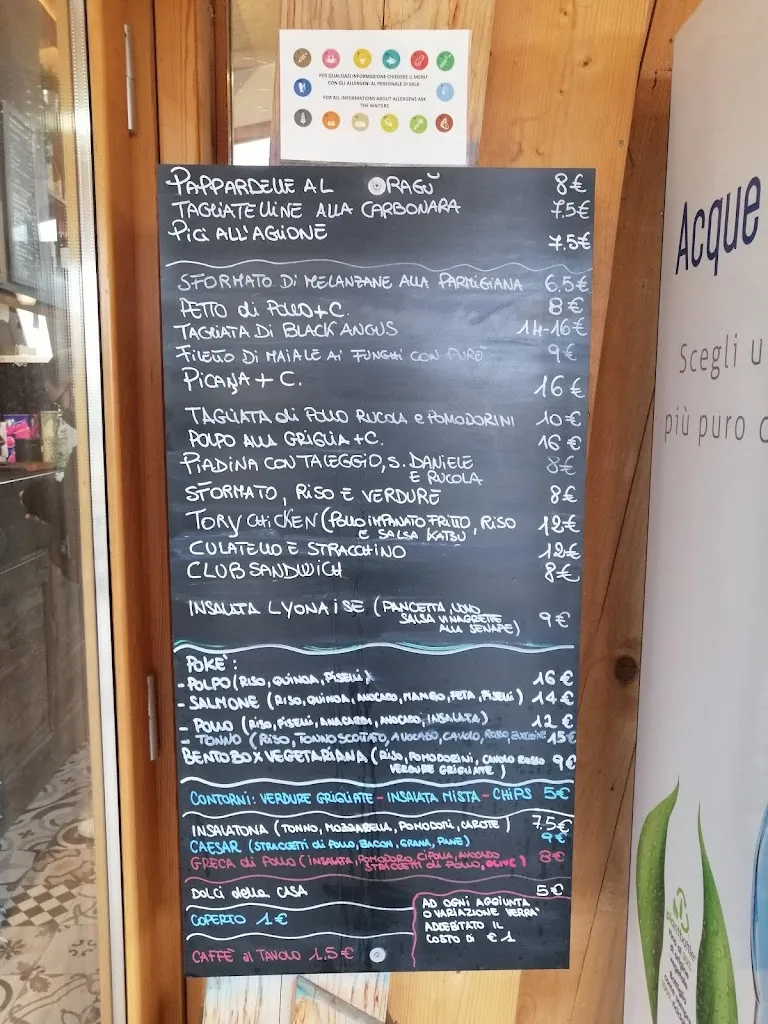 PER QUALSIASI INFORMAZIONE CHIEDERE IL MENU'
CON GLI ALLERGENI AL PERSONALE DI SALA
FOR ALL INFORMATIONS ABOUT ALLERGENS ASK
THE WAITERS
PAPPARDELLE AL RAGÙ 8€
TAGLIATELLINE ALLA CARBONARA 7.5€
PICI ALL'AGLIONE 7.5€
SFORMATO DI MELANZANE ALLA PARMIGIANA 6.5€
PETTO di POLLO+C. 8€
TAGLIATA DI BLACK ANGUS 14-16€
FILETTO DI MAIALE AI FUNGHI CON PURÈ 9€
PICANA + C. 16€
TAGLIATA di POLLO RUCOLA e POMODORINI 10€
POLPO ALLA GRIGLIA +C. 16€
PIADINA CON TALEGGIO, S. DANIELE 8€
E RUCOLA
SFORMATO, RISO E VERDURE 8€
TORY CHICKEN (POLLO IMPANATO FRITTO, RISO 12€
E SALSA KATSU
CULATELLO E STRACCHINO 12€
CLUB SANDWICH 8€
INSALATA LYONAISE (PANCETTA, UOVO 9€
SALSA VINAGRETTE
ALLA SENAPE)
POKÈ:
- POLPO (RISO, QUINOA, PISELLI) 16€
- SALMONE (RISO, QUINOA, AVOCADO, MANGO, FETA, PISELLI) 14€
- POLLO (RISO, PISELLI, ANACARDI, AVOCADO, INSALATA) 12€
- TONNO (RISO, TONNO SCOTTATO, AVOCADO, CAVOLO, ROSSO, ZUCCHINE 15€
BENTO BOX VEGETARIANA (RISO, POMODORINI, CAVOLO ROSSO 9€
VERDURE GRIGLIATE)
CONTORNI: VERDURE GRIGLIATE - INSALATA MISTA - CHIPS 5€
INSALATONA (TONNO, MOZZARELLA, POMODORI, CAROTE) 7.5€
CAESAR (STRACCETTI di POLLO, BACON, GRANA, PANE) 9€
GRECA di POLLO (INSALATA, POMODORO, CIPOLLA, AVOCADO 8€
STRACCETTI di POLLO, OLIVE)
DOLCI della CASA 5€
COPERTO 1€
CAFFÈ al TAVOLO 1.5€
AD OGNI AGGIUNTA
O VARIAZIONE VERRA'
ADDEBITATO IL
COSTO DI €1
Acque
Scegli u
più puro c